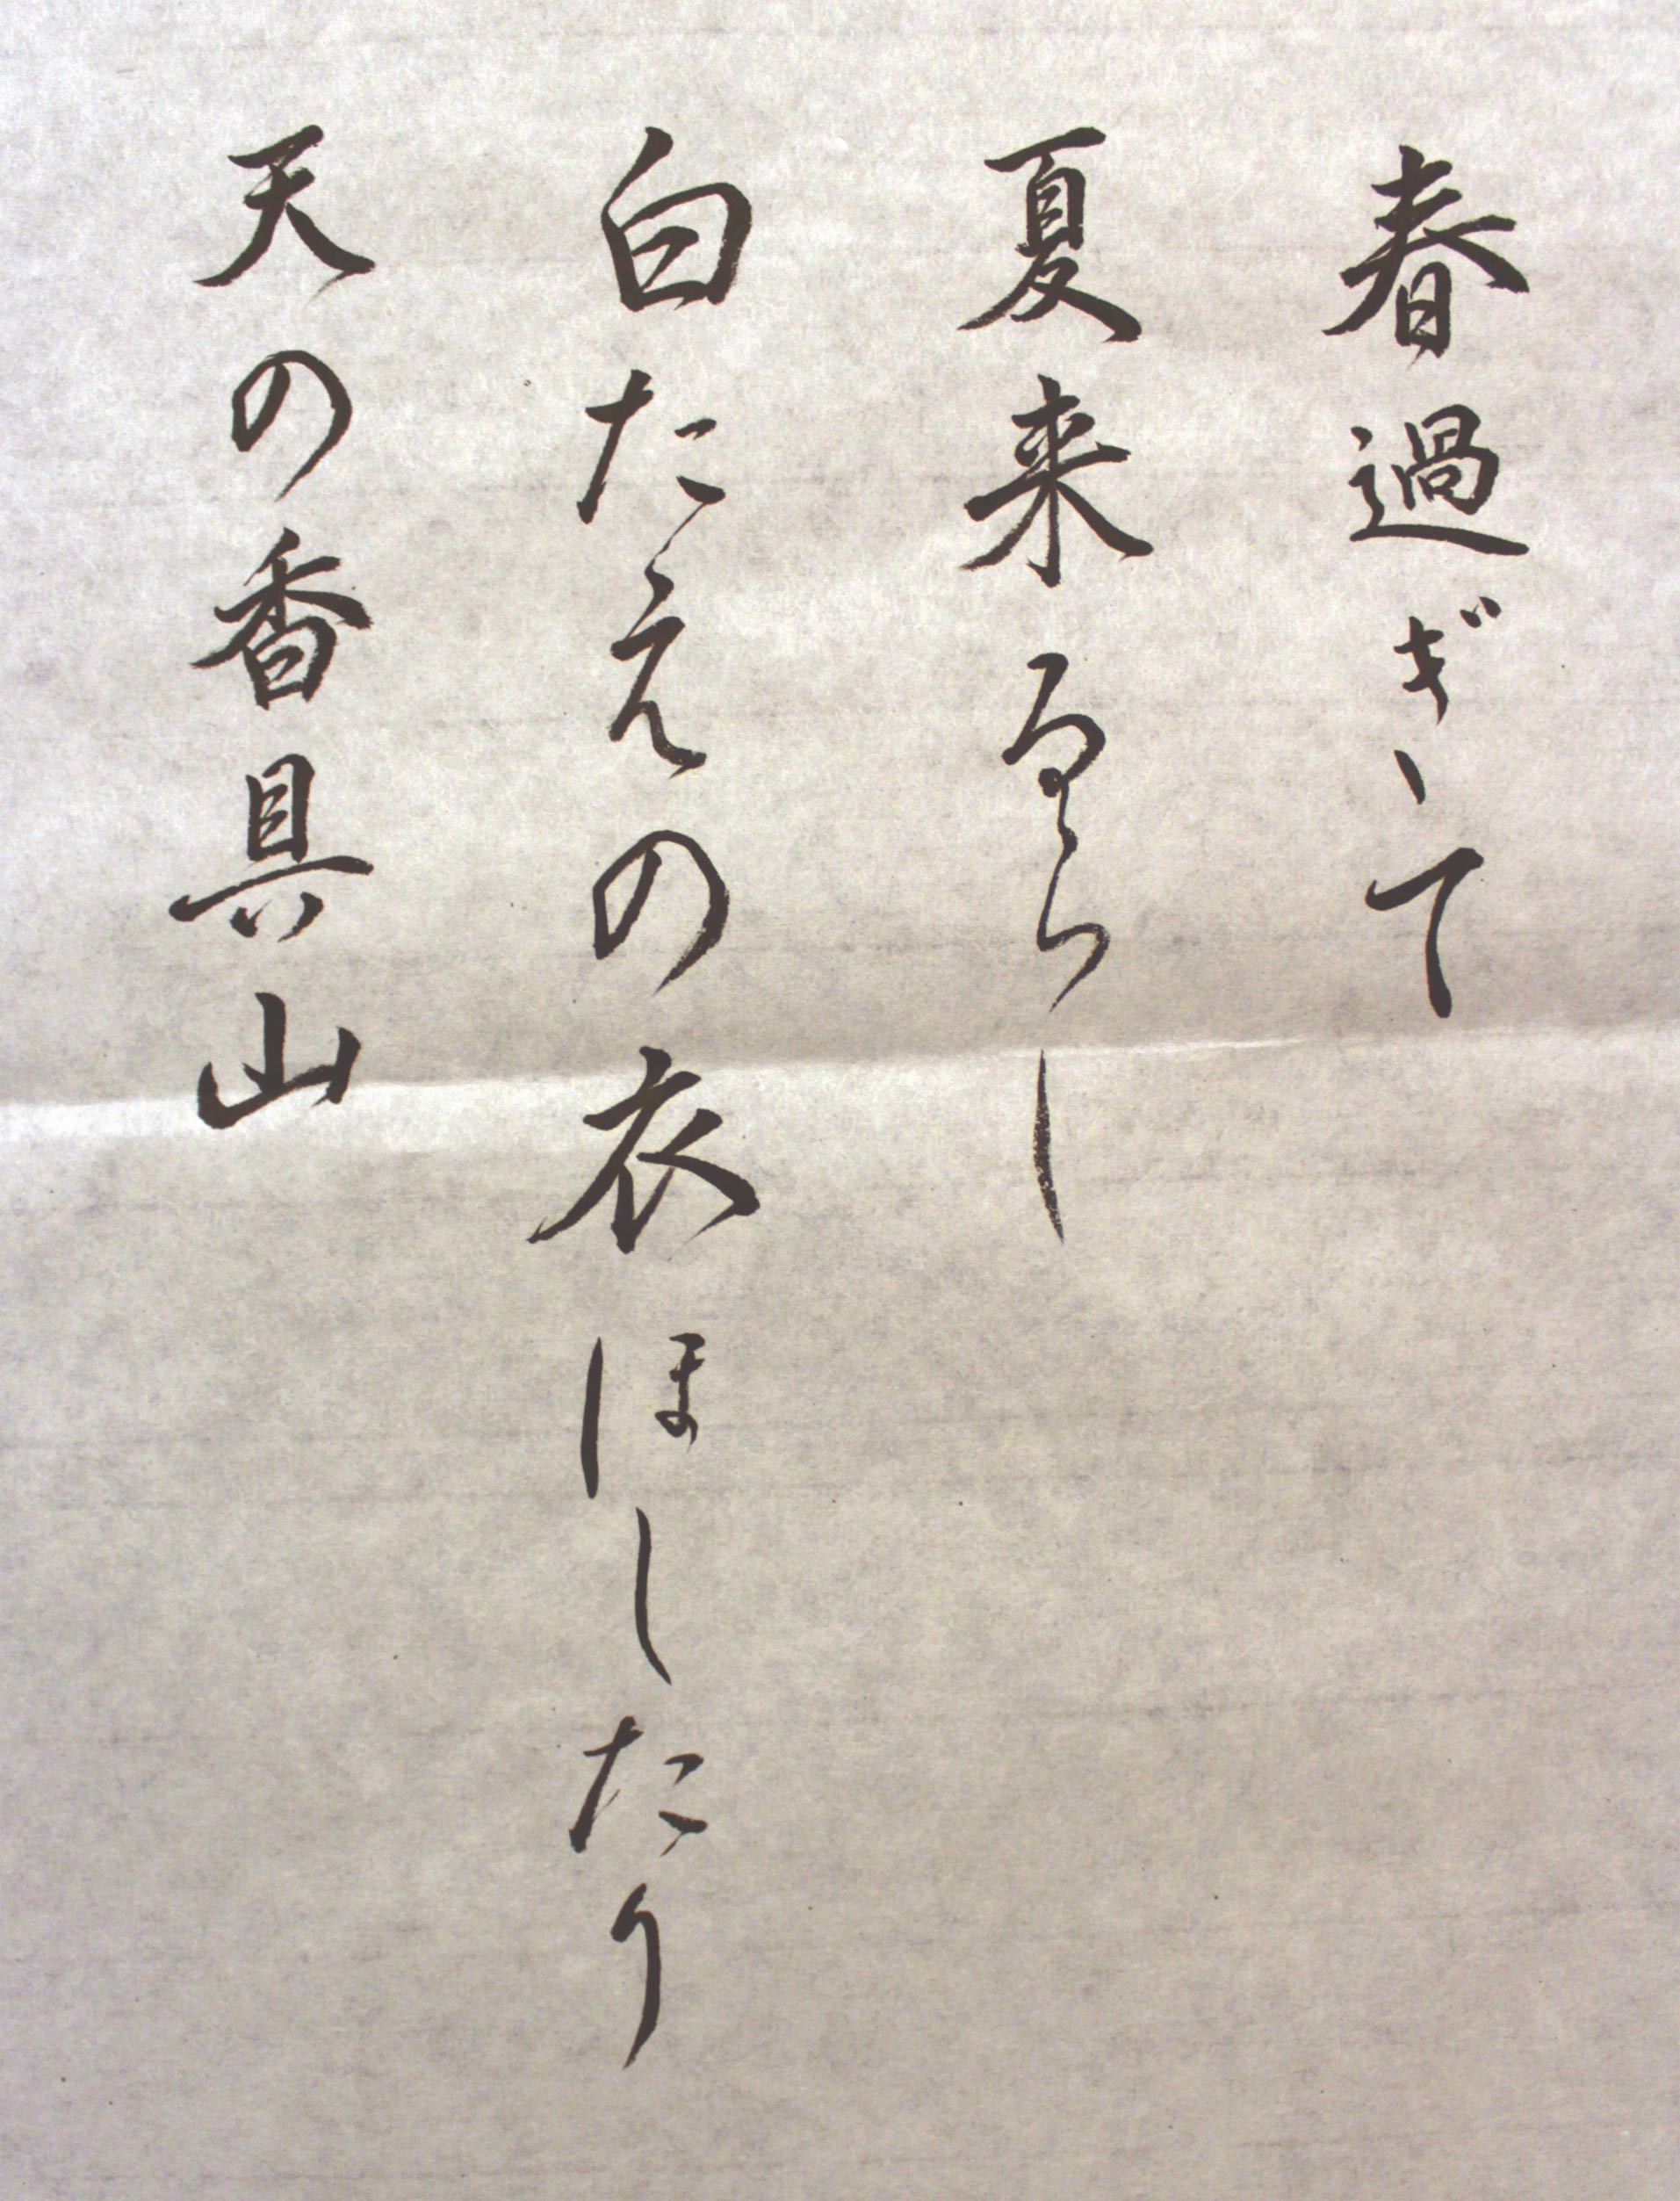 春過ぎて
夏来るらし
白たえの衣ほしたり
天の香具山